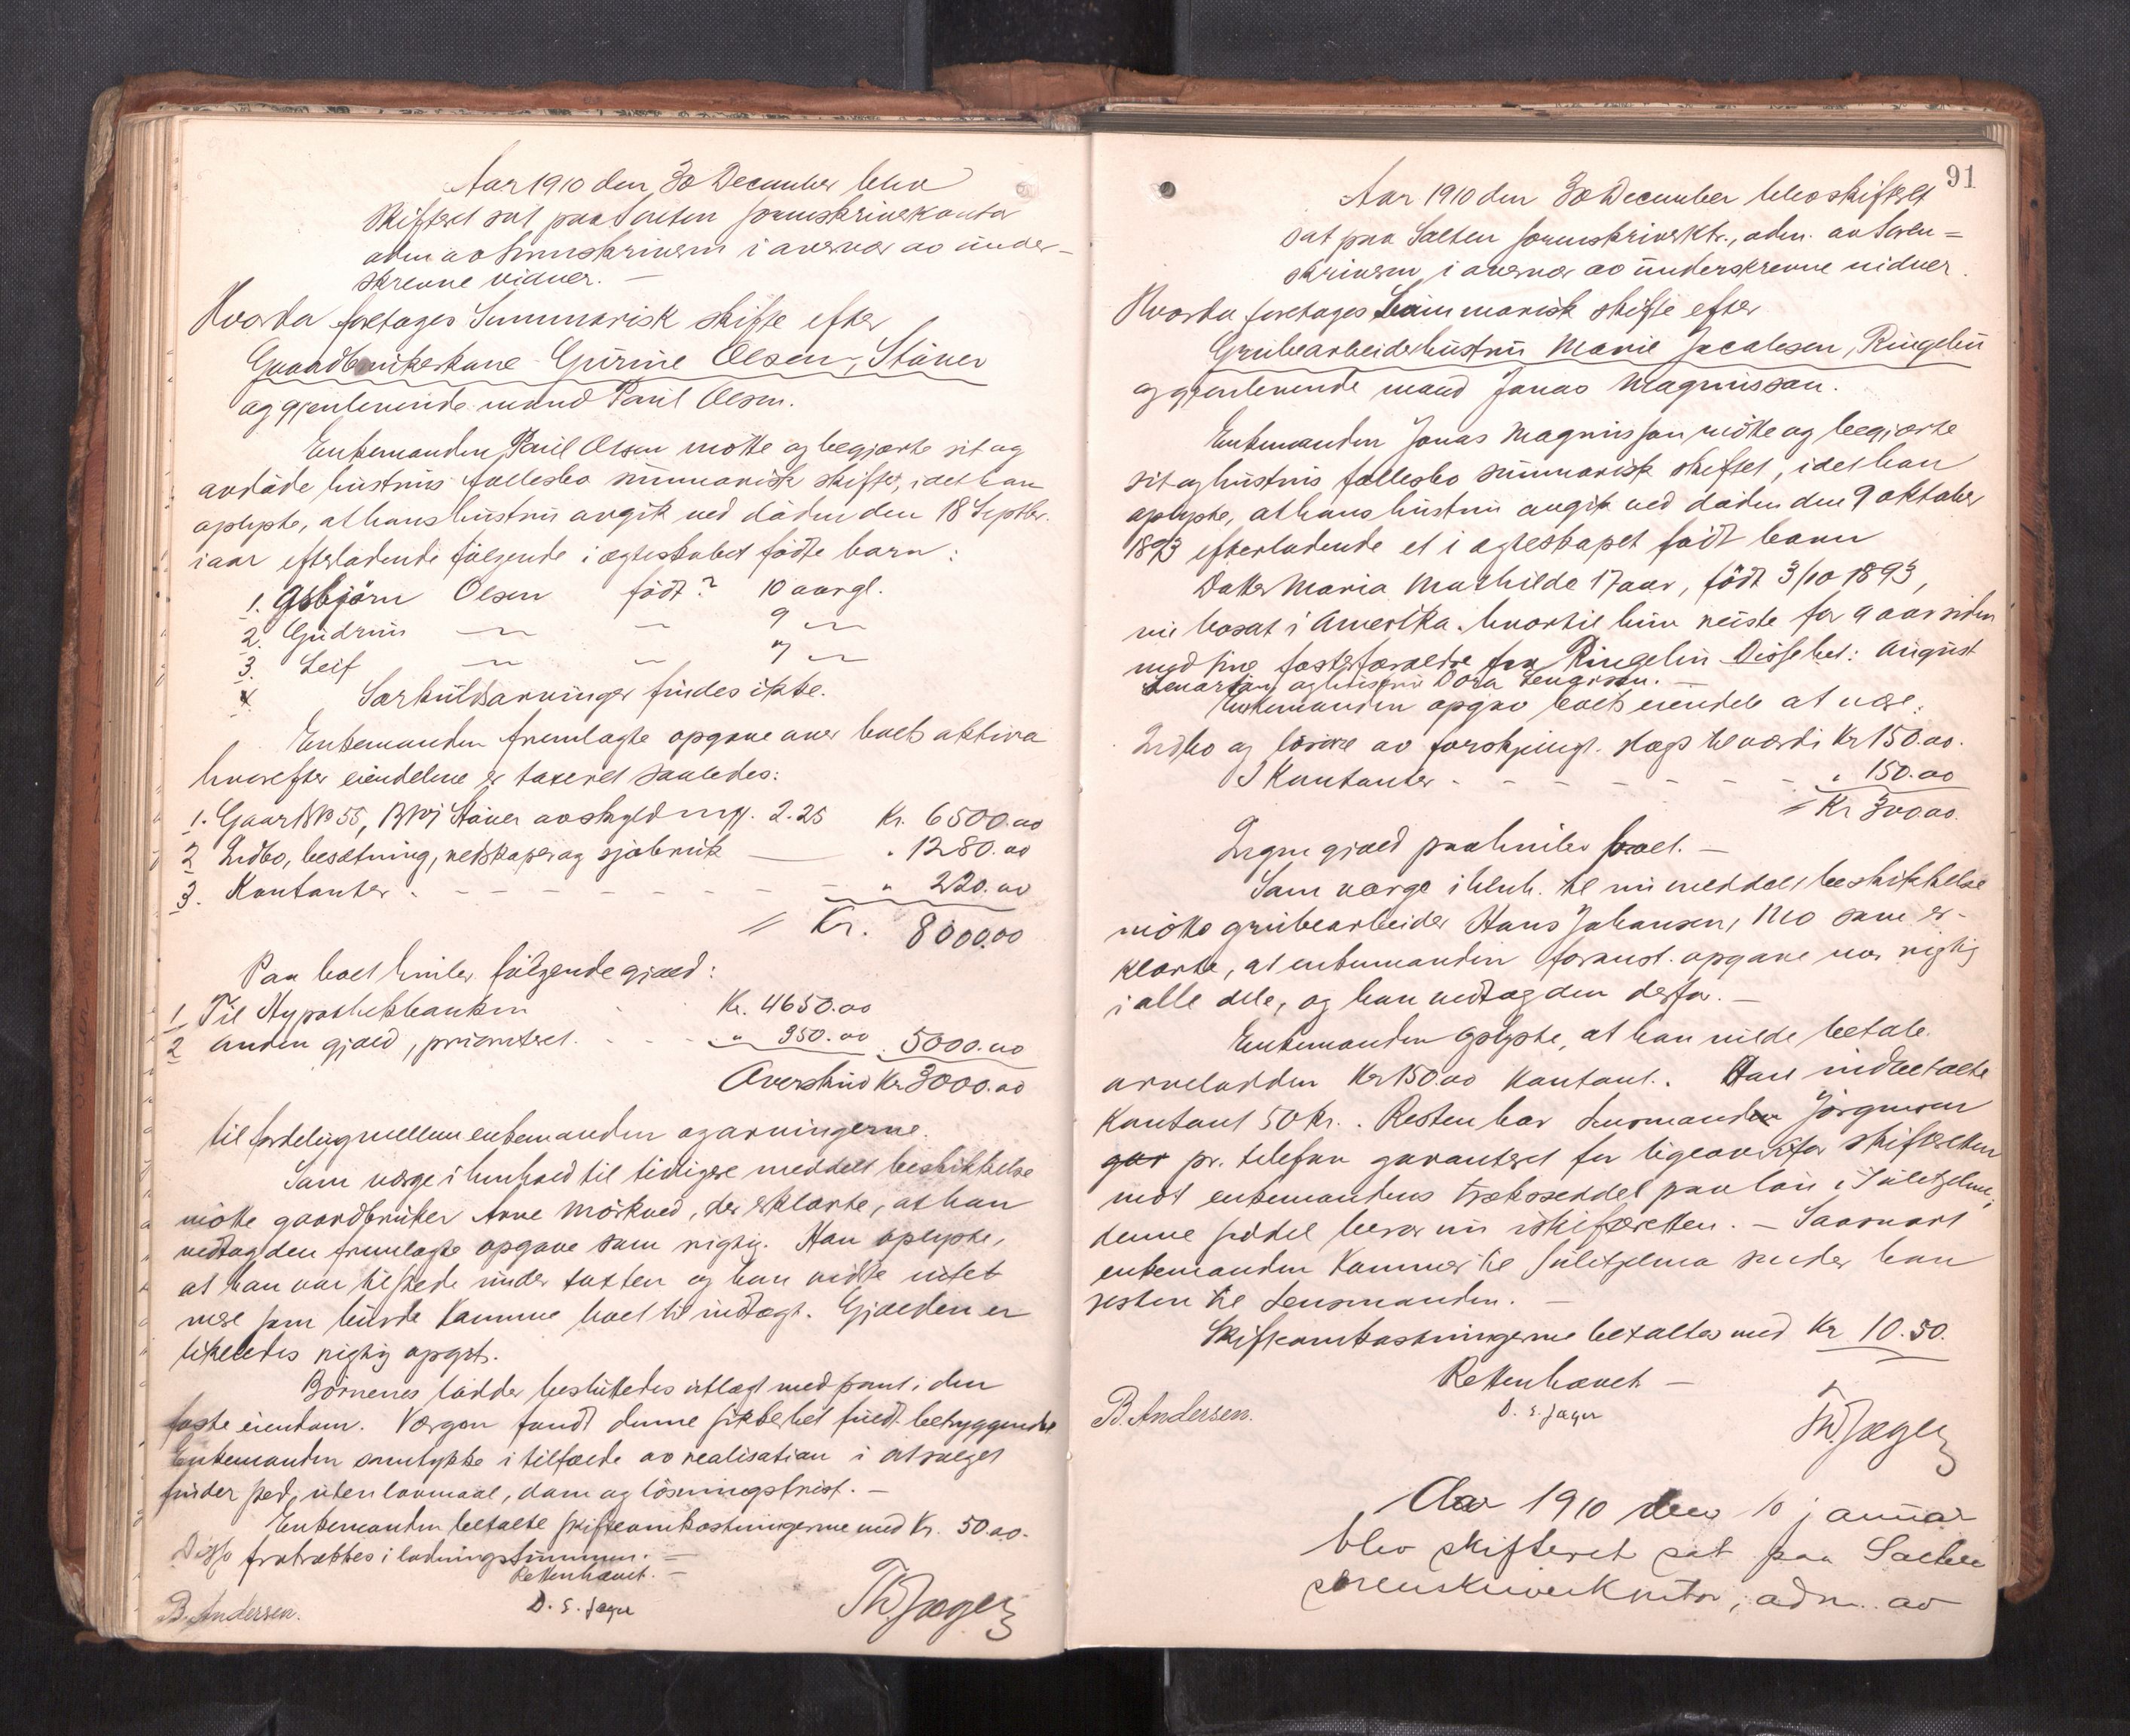 Aar 1910 den 30 December blev
skifteret sat paa Salten sorenskriverkontor
adm. av Sorenskriveren i overvær av under-
skrevne vidner. –
Hvorda foretages Summarisk skifte efter
Gaardbrukerkone Gurine Olsen, Støver
og gjenlevende mand Paul Olsen.
Enkemanden Paul Olsen møtte og begjærte sit og
avdøde hustrus fællesbo summarisk skiftet, idet han
oplyste, at hans hustru avgik ved døden den 18 Septbr.
iaar efterladende følgende i ægteskabet fødte barn:
1. Asbjørn Olsen født? 10 aar gl.
2. Gudrun — — 9 —
3. Leif — — 7 —
4 Særkuldsarvinger findes ikke.
Enkemanden fremlagte opgave over boets aktiva
hvorefter eiendelene er taxeret saaledes:
1. Gaard No 55, BNo 1 Støver avskyld mrk. 2.25 Kr. 6500.00
2 Indbo, besætning, redskaper og sjøbruk — " 1280.00
3. Kontanter . - - - - - - - - " 220.00
= Kr. 8000.00
Paa boet hviler følgende gjæld:
1 Til Hypothekbanken Kr. 4650.00
2 Anden gjæld, prioritert. - - - " 350.00 . 5000.00
Overskud Kr 3000.00
til fordeling mellem enkemanden og arvingerne.
Som værge i henhold til tidligere meddelt beskikkelse
møtte gaardbruker Arne Mørkved, der erklærte, at han
vedtog den fremlagte opgave som rigtig. Han oplyste,
at han var tilstede under taxten og han vidste intet
mere som burde komme boet til indtægt. Gjælden er
likeledes rigtig opgit.
Børnenes lodder besluttedes utlagt med pant i den
faste eiendom. Værgen fandt denne sikkerhet fuldt betryggende
Enkemanden samtykke i tilfælde av realisation i at salget
finder sted, uten lovmaal, dom og løsningsfrist. –
Enkemanden betalte skifteomkostningerne med Kr. 50.00.
Disse fratrækkes i lodningssummen. –
Retten hævet. –
B. Andersen. D. S. Jager Th Jæger
91
Aar 1910 den 30 December blev skifteret
sat paa Salten sorenskriverktr., adm. av Soren=
skriveren, i overvær av underskrevne vidner.
Hvorda foretages Summarisk skifte efter
Grubearbeiderhustru Marie Jacobsen, Ringelin
og gjenlevende mand Jonas Magnusson.
Enkemanden Jonas Magnusson møtte og begjærte
sit og hustrus fællesbo summarisk skiftet, idet han
oplyste, at hans hustru avgik ved døden den 9 oktober
1893 efterladende et i ægteskapet født barn
Datter Maria Mathilde 17 aar, født 3/10 1893,
nu bosat i Amerika. hvortil hun reiste for 9 aar siden
med sine fosterforældre fra Ringelin. Disse het: August
Lenartsen og hustru Dora Lenartsen. –
Enkemanden opgav boets eiendele at være:
Indbo og løsøre av forskjelligt. slags til værdi Kr 150.00.
I Kontanter - - - - - - - - " 150.00
= Kr 300.00.
Ingen gjæld paahviler boet. –
Som værge i henh. til nu meddelt beskikkelse
møtte grubearbeider Hans Johansen, Mo som er-
klærte, at enkemanden foranst. opgave var rigtig
i alle dele, og han vedtog den derfor. –
Enkemanden oplyste, at han vilde betale
arvelodden Kr 150.00 kontant. Han indbetalte
kontant 50 kr. . Resten har Lensmanden Jørgensen
gar pr. telefon garanteret for ligeoverfor skifteretten
mot enkemandens trækseddel paa løn i Sulitjelma;
denne seddel beror nu i skifteretten. – Saasnart
enkemanden kommer til Sulitjelma sender han
resten til Lensmanden. –
Skifteomkostningerne betaltes med Kr 10.50.
Retten hævet –
B. Andersen. D. S. Jager Th. Jæger
Aar 1910 den 10 januar
blev skifteret sat paa Salten
sorenskriverkontor, adm. av